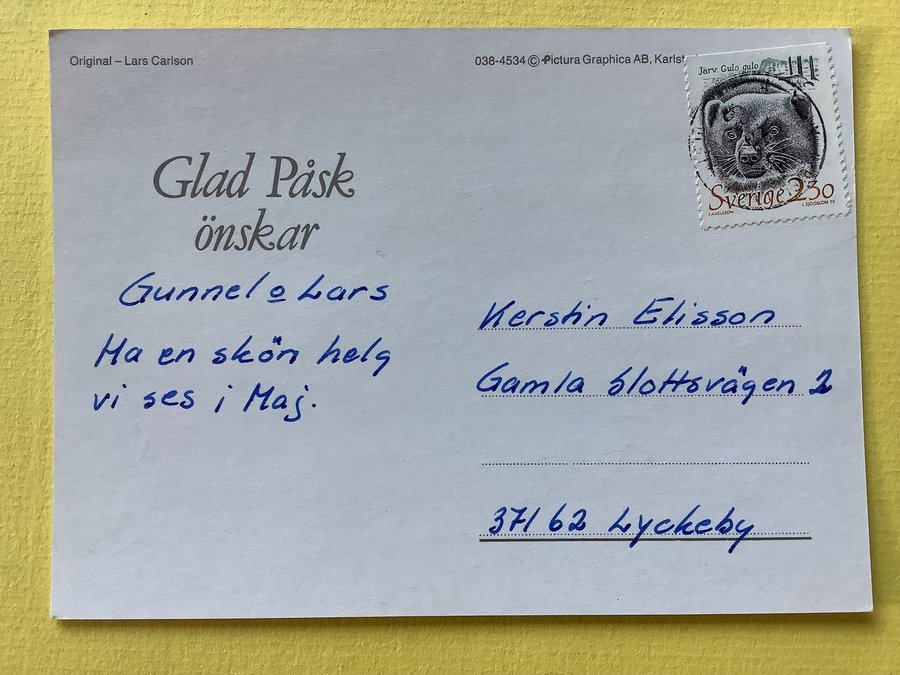 Original – Lars Carlson
038-4534 © Pictura Graphica AB, Karlst
Järv Gulo gulo
Sverige 230
T. AXELSSON L SJÖÖBLOM SC
Glad Påsk
önskar
Gunnel o Lars
Ha en skön helg
vi ses i Maj.
Kerstin Elisson
Gamla Slottsvägen 2
371 62 Lyckeby